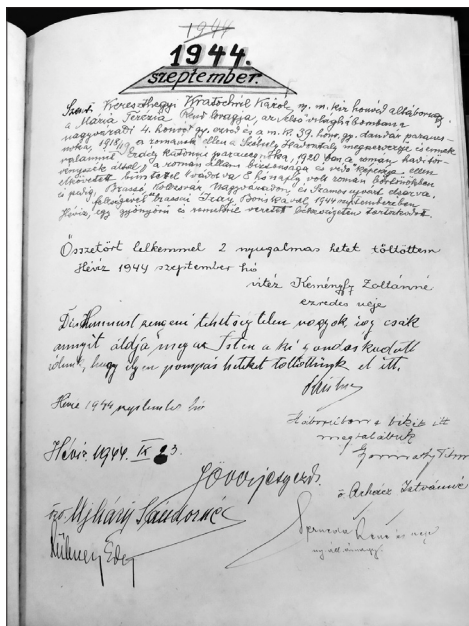 1944
1944.
szeptember.
Szent Kereszthegyi Kratochvil Károly ny. m. kir. honvéd altábornagy
a Mária Terézia Rend lovagja, az első világháborúban a
nagyváradi 4. honvéd gy. ezred és a m. k. 39. hon. gy. dandár parancs-
noka, 1918/19 a románok ellen a Székely Hadosztály megszervezője és ennek
valamint Erdély Katonai parancsnoka, 1920 ban a román had. tör-
vényszék által, "a román állam biztonsága és védő képessége ellen
elkövetett bűntettel" vádolva 8 hónapig volt román börtönökben
és pedig, Brassó, Kolozsvár, Nagyváradon, és Szamosujvárt elzárva.
feleségével brassói Boriskával, 1944 szeptemberében
Hévíz, egy gyönyörű és vezetett tartózkodott
Összetört lelkemmel 2 nyugalmas hetet töltöttem
Hévíz 1944 szeptember hó
vitéz Keményfy Zoltánné
ezredes neje
Himnuszt zengeni tehetségtelen vagyok, így csak
annyit áldja meg az Isten a ki gondoskodott
rólunk, hogy ilyen pompás heteket töltöttünk el itt.
Hévíz 1944 szeptember hó
Háborúban a békét itt
megtaláltuk
Hévíz, 1944. IX 23.
ö. Achácz Istvánné
özv. Ujháry Sándorné
és neje